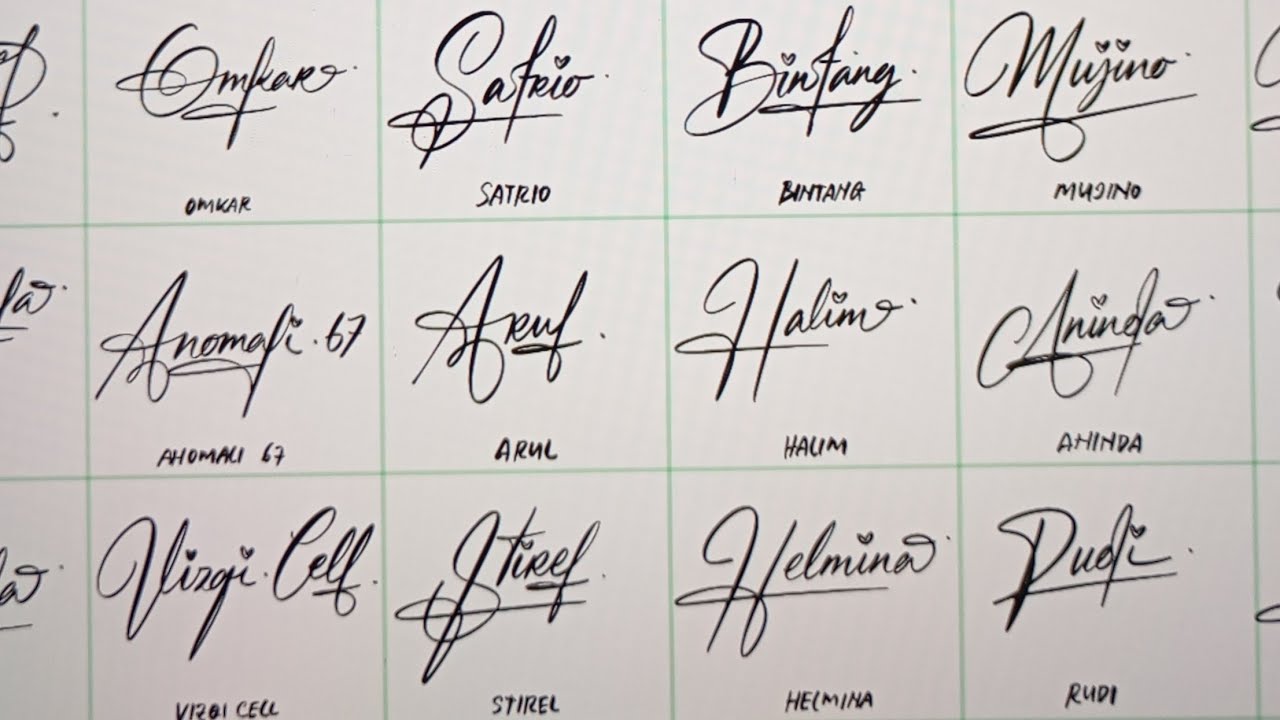 Omkar
Satrio
Bintang
Mujino
OMKAR
SATRIO
BINTANG
MUJINO
Anomali. 67
Arul.
Halim
Aninda
ANOMALI 67
ARUL
HALIM
ANINDA
Vizgi. Cell.
Stirel
Helmina
Rudi
VIZGI CELL
STIREL
HELMINA
RUDI